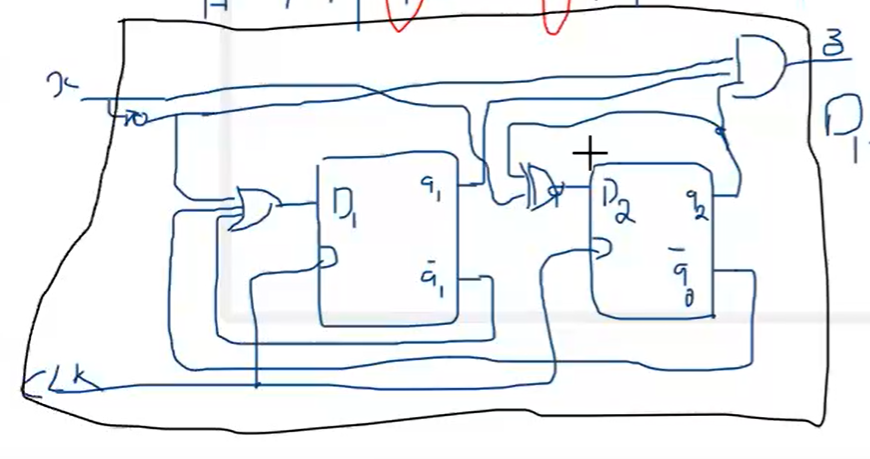 x
3
D1
D1
q1
q̄1
D2
q2
q̄0
CLK